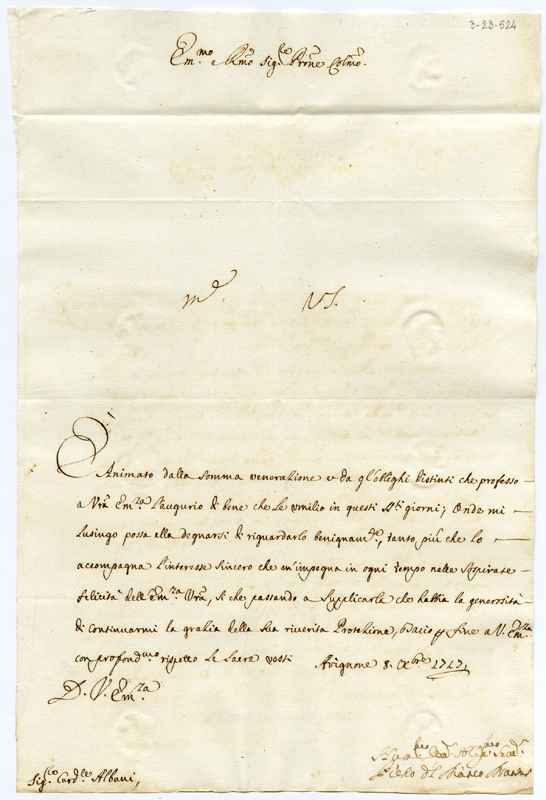 3-23-524
Em.mo e Rmo Sig.r Prone Colmo.
Animato dalla somma venerazione e da gl'obblighi distinti che professo
a Vrã Em.za l'augurio di bene che Le umilio in questi Sti giorni; Onde mi
lusingo possa ella degnarsi di riguardarlo benignam.te, tanto più che lo
accompagna l'interesse sincero che m'impegna in ogni tempo nelle
felicità dell'Em.za Vrã, si che passando a supplicarla che habbia la generosità
di continuarmi la grazia della sua riverita Protezione, bacio p fine a V. Em.za
con profond.mo rispetto le Sacre vesti Avignone 8. Xbre 1717,
D. V. Em.za
Sig.r Card.le Albani,